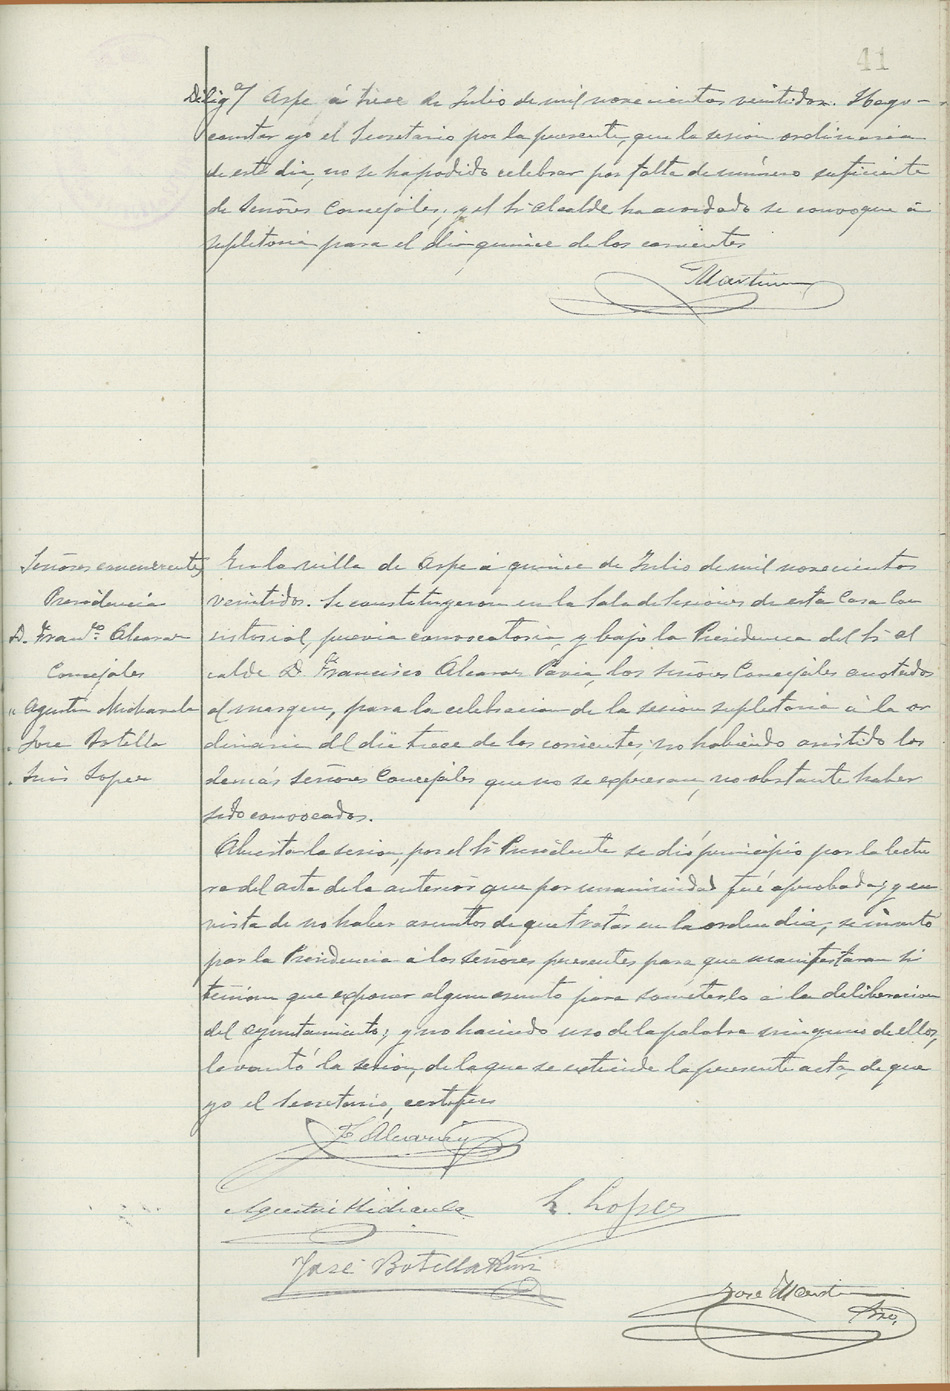 41
Diligª/ Aspe á trece de Julio de mil novecientos veintidos. Hago
constar yo el Secretario por la presente, que la sesion ordinaria
de este dia, no se ha podido celebrar por falta de número suficiente
de Señores Concejales; y el Sr Alcalde ha acordado se convoque á
supletoria para el dia quince de los corrientes
Martinez
Señores concurrentes
Presidencia
D. Franco. Alcaraz
Concejales
" Agustin Michavila
" Jose Botella
" Luis Lopez
En la villa de Aspe á quince de Julio de mil novecientos
veintidos. Se constituyeron en la Sala de Sesiones de esta Casa Con
sistorial, previa convocatoria y bajo la Presidencia del Sr Al
calde D. Francisco Alcaraz Pavia, los Señores Concejales anotados
al margen, para la celebracion de la sesion supletoria á la or
dinaria del dia trece de los corrientes; no habiendo asistido los
demás Señores Concejales que no se expresan, no obstante haber
sido convocados.
Abierta la sesion, por el Sr Presidente se dió principio por la lectu
ra del acta de la anterior que por unanimidad fué aprobada; y en
vista de no haber asuntos de que tratar en la orden dia, se invitó
por la Presidencia á los señores presentes para que manifestaran si
tenian que exponer algun asunto para someterlo á la deliberacion
del ayuntamiento; y no haciendo uso de la palabra ninguno de ellos,
levantó la sesion, de la que se extiende la presente acta, de que
yo el Secretario, certifico
F. Alcaraz
Agustin Michavila L. Lopez
José Botella
Jose Martinez
Srio.